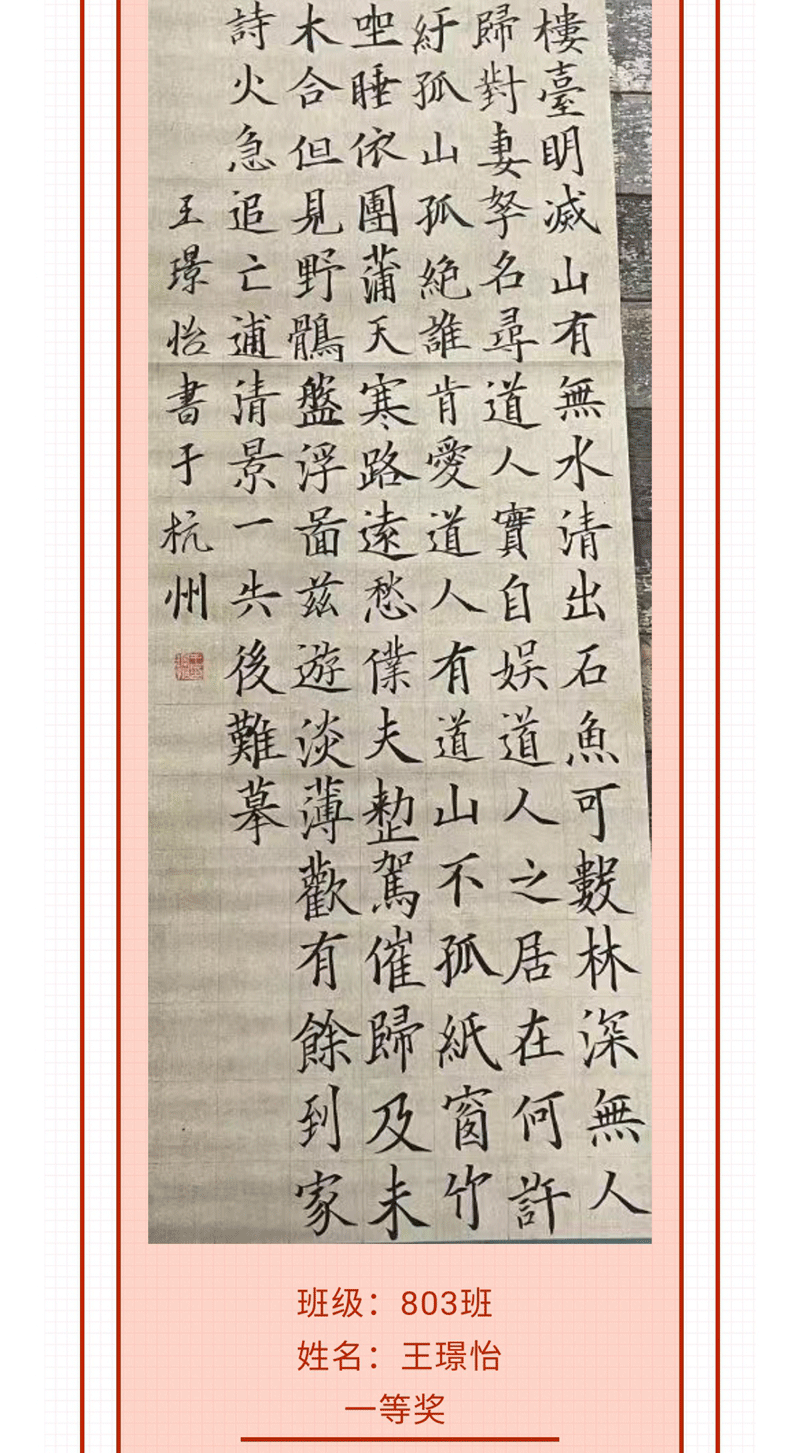 樓臺明滅山有無水清出石魚可數林深無人
歸對妻孥名尋道人實自娛道人之居在何許
紆孤山孤絕誰肯愛道人有道山不孤紙窗竹
坐睡依團蒲天寒路遠愁僕夫整駕催歸及未
木合但見野鶻盤浮啚茲遊淡薄歡有餘到家
詩火急追亡逋清景一失後難摹
王璟怡書于杭州
班级：803班
姓名：王璟怡
一等奖